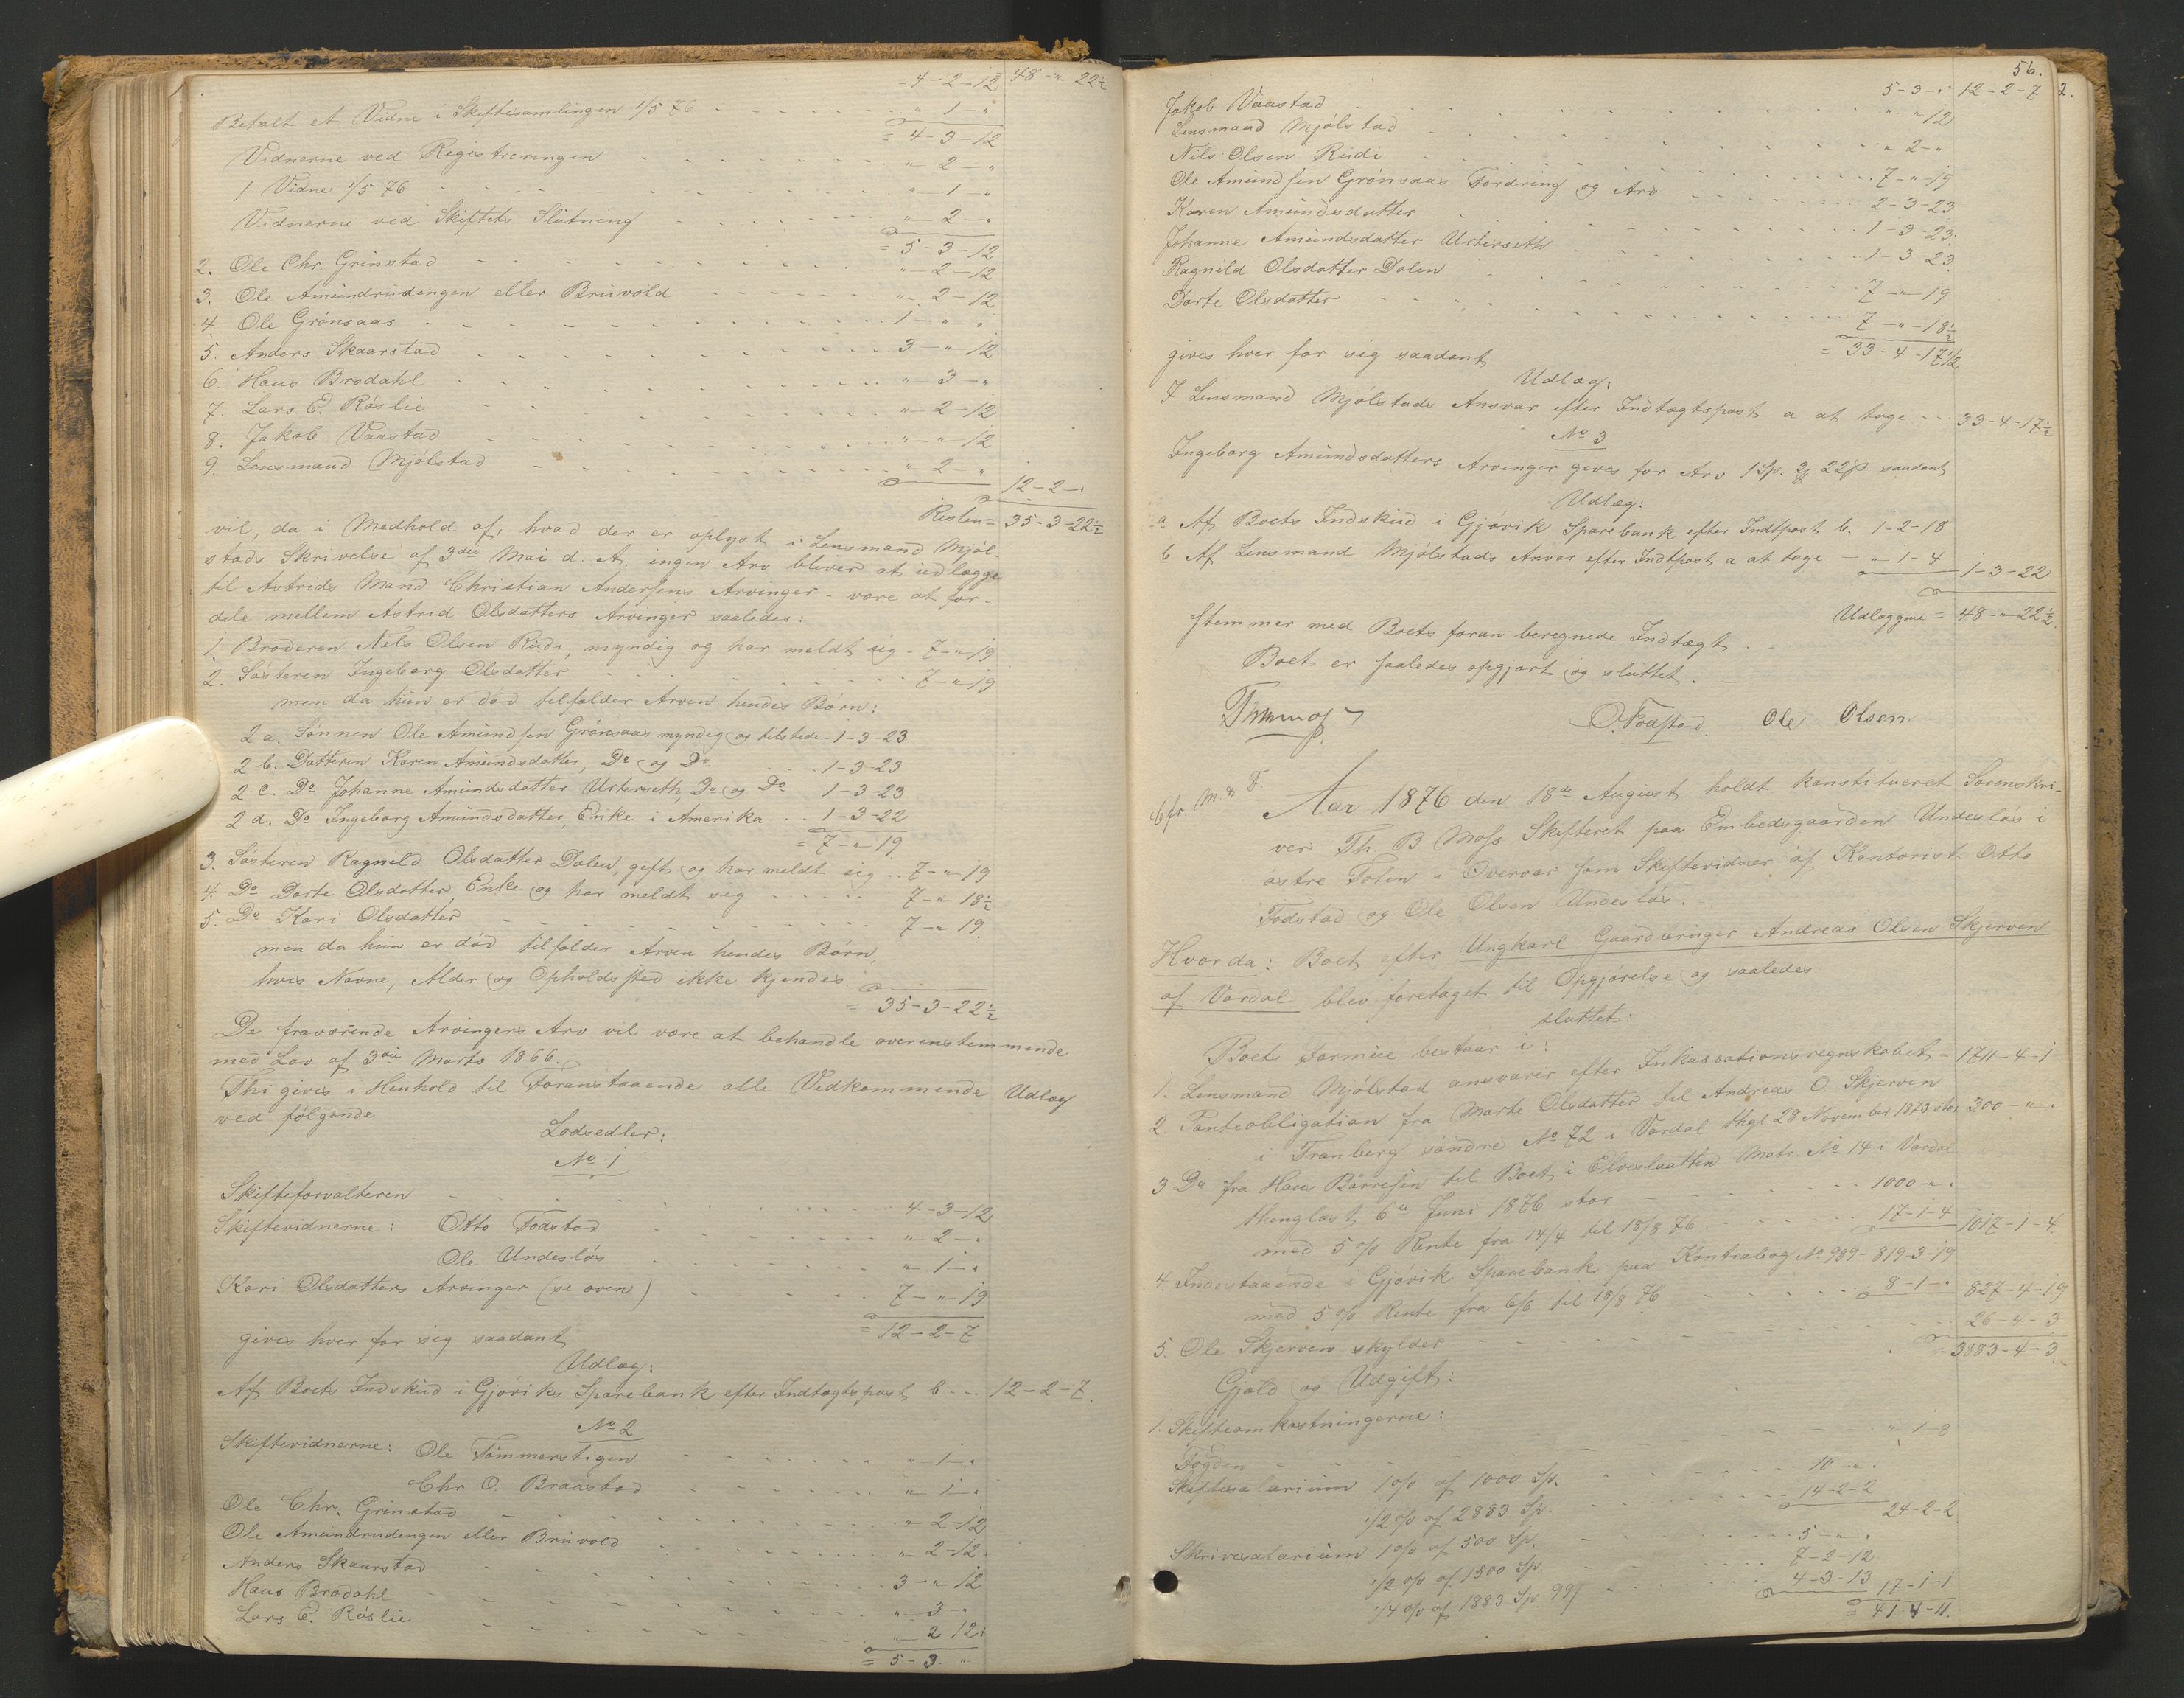 = 4 - 2 - 12 48 - " 22½
Betalt et Vidne i Skiftesamlingen 1/5 76 - - - - " 1 - "
= 4 - 3 - 12
Vidnerne ved Registreringen - - - - " 2 - "
1 Vidne 1/5 76 - - - - " 1 - "
Vidnerne ved Skiftets Slutning - - - - " 2 - "
= 5 - 3 - 12
2. Ole Chr. Grinstad - - - - " 2 - 12
3. Ole Amundrudengen eller Bruvold - - - - " 2 - 12
4. Ole Grönsaas - - - - 1 - " - "
5. Anders Skaarstad - - - - 3 - " 12
6. Hans Brodahl - - - - " 3 - "
7. Lars E. Röslie - - - - " 2 - 12
8. Jakob Vaastad - - - - " - " 12
9. Lensmand Mjölstad - - - - " 2 " 12 - 2 - "
Resten = 35 - 3 - 22½
vil, da i Medhold af, hvad der er oplyst i Lensmand Mjöl-
stads Skrivelse af 3die Mai d. A. ingen Arv bliver at udlægge
til Astrids Mand Christian Andersens Arvinger - være at for-
dele mellem Astrid Olsdatters Arvinger saaledes:
1. Broderen Nils Olsen Rudi, myndig og har meldt sig - 7 - " 19
2. Søsteren Ingeborg Olsdatter - - - - 7 - " 19
men da hun er död tilfalder Arven hendes Börn:
2 a. Sönnen Ole Amundsen Grönsaas myndig og tilstede - 1 - 3 - 23
2 b. Datteren Karen Amundsdatter, Do og Do - - 1 - 3 - 23
2 c. Do Johanne Amundsdatter Urterseth, Do og Do 1 - 3 - 23
2 d. Do Ingeborg Amundsdatter, Enke i Amerika - - 1 - 3 - 22
= 7 - " 19
3. Søsteren Ragnild Olsdatter Dalen, gift og har meldt sig - - 7 - " 19
4. Do Dorte Olsdatter, Enke og har meldt sig - - - - 7 - " 18½
5. Do Kari Olsdatter - - - - 7 - " 19
men da hun er död tilfalder Arven hendes Börn,
hvis Navne, Alder og Opholdssted ikke kjendes.
= 35 - 3 - 22½
De fraværende Arvingers Arv vil være at behandle overenstemmende
med Lov af 3die Marts 1866.
Thi gives i Henhold til Foranstaaende alle Vedkommende Udlæg
ved fölgende
Lodsedler:
No 1
Skifteforvalteren - - - - 4 - 3 - 12
Skiftevidnerne: Otto Fodstad - - - - " 2 - "
Ole Undeslös - - - - " 1 - "
Kari Olsdatters Arvinger (se oven) - - - - 7 - " 19
= 12 - 2 - 7
gives hver for sig saadant
Udlæg:
Af Boets Indskud i Gjöviks Sparebank efter Indtægtspost b - - 12 - 2 - 7.
No 2
Skiftevidnerne: Ole Tömmerstigen - - - - " 1 - "
Chr O. Braastad - - - - " 1 - "
Ole Chr. Grinstad - - - - " 2 - 12
Ole Amundrudengen eller Bruvold - - - - " 2 - 12
Anders Skaarstad - - - - 3 - " 12
Hans Brodahl - - - - " 3 - "
Lars E. Röslie - - - - " 2 12
= 5 - 3 - "
56.
5 - 3 - " 12 - 2 - 7 2.
Jakob Vaastad - - - - " - " 12
Lensmand Mjölstad - - - - " 2 - "
Nils Olsen Rudi - - - - 7 - " - 19
Ole Amundsen Grönsaas Fordring og Arv - - - - 2 - 3 - 23
Karen Amundsdatter - - - - 1 - 3 - 23
Johanne Amundsdatter Urterseth - - - - 1 - 3 - 23
Ragnild Olsdatter Dalen - - - - 7 - " 19
Dorte Olsdatter - - - - 7 - " - 18½
= 33 - 4 - 17 1/2
gives hver for sig saadant
Udlæg:
I Lensmand Mjölstads Ansvar efter Indtægtspost a at tage - - 33 - 4 - 17½
No 3
Ingeborg Amundsdatters Arvinger gives for Arv 1 Sp. 3 22 β saadant
Udlæg:
a Af Boets Indskud i Gjövik Sparebank efter Indtpost b. 1 - 2 - 18
b Af Lensmand Mjölstads Ansvar efter Indtpost a at tage - " 1 - 4 1 - 3 - 22
Udlæggene = 48 - " 22½
stemmer med Boets foran beregnede Indtægt.
Boet er saaledes opgjort og sluttet.
O. Fodstad Ole Olsen
Aar 1876 den 18de August holdt konstitueret Sorenskri-
ver Th. B Moss Skifteret paa Embedsgaarden Undeslös i
östre Toten i Overvær som Skiftevidner af Kontorist Otto
Fodstad og Ole Olsen Undeslös.
Hvorda: Boet efter Ungkarl, Gaardbruger Andreas Olsen Skjerven
af Vardal blev foretaget til Opgjörelse og saaledes
sluttet:
Boets Formue bestaar i:
1. Lensmand Mjölstad ansvarer efter Inkassationsregnskabet - 1711 - 4 - 1
2. Panteobligation fra Marte Olsdatter til Andreas O. Skjerven
i Tranberg söndre No 72 i Vardal thgl 28 November 1873 stor 300 - " - "
3 Do fra Hans Börresen til Boet i Elveslaatten Matr. No 14 i Vardal
thinglæst 6te Juni 1876 stor - - - - 1000 - " - "
med 5 o/o Rente fra 14/4 til 18/8 76 - - - - 17 - 1 - 4 1017 - 1 - 4
4. Indestaaende i Gjövik Sparebank paa Kontrabog No 989 - 819 - 3 - 19
med 5 o/o Rente fra 6/6 til 18/8 76 - - - - 8 - 1 - " 827 - 4 - 19
5. Ole Skjerven skylder - - - - 26 - 4 - 3
3883 - 4 - 3
Gjæld og Udgift:
1. Skifteomkostningerne:
Fogden - - - - " 1 - 8
Skiftesalarium 1 o/o af 1000 Sp. - - - - 10 - " - "
1/2 o/o af 2883 Sp. - - - - 14 - 2 - 2 24 - 2 - 2
Skrivesalarium 1 o/o af 500 Sp. - - - - 5 - " - "
1/2 o/o af 1500 Sp. - - - - 7 - 2 - 12
1/4 o/o af 1883 Sp. 99 β - - - - 4 - 3 - 13 17 - 1 - 1
= 41 4 - 11.